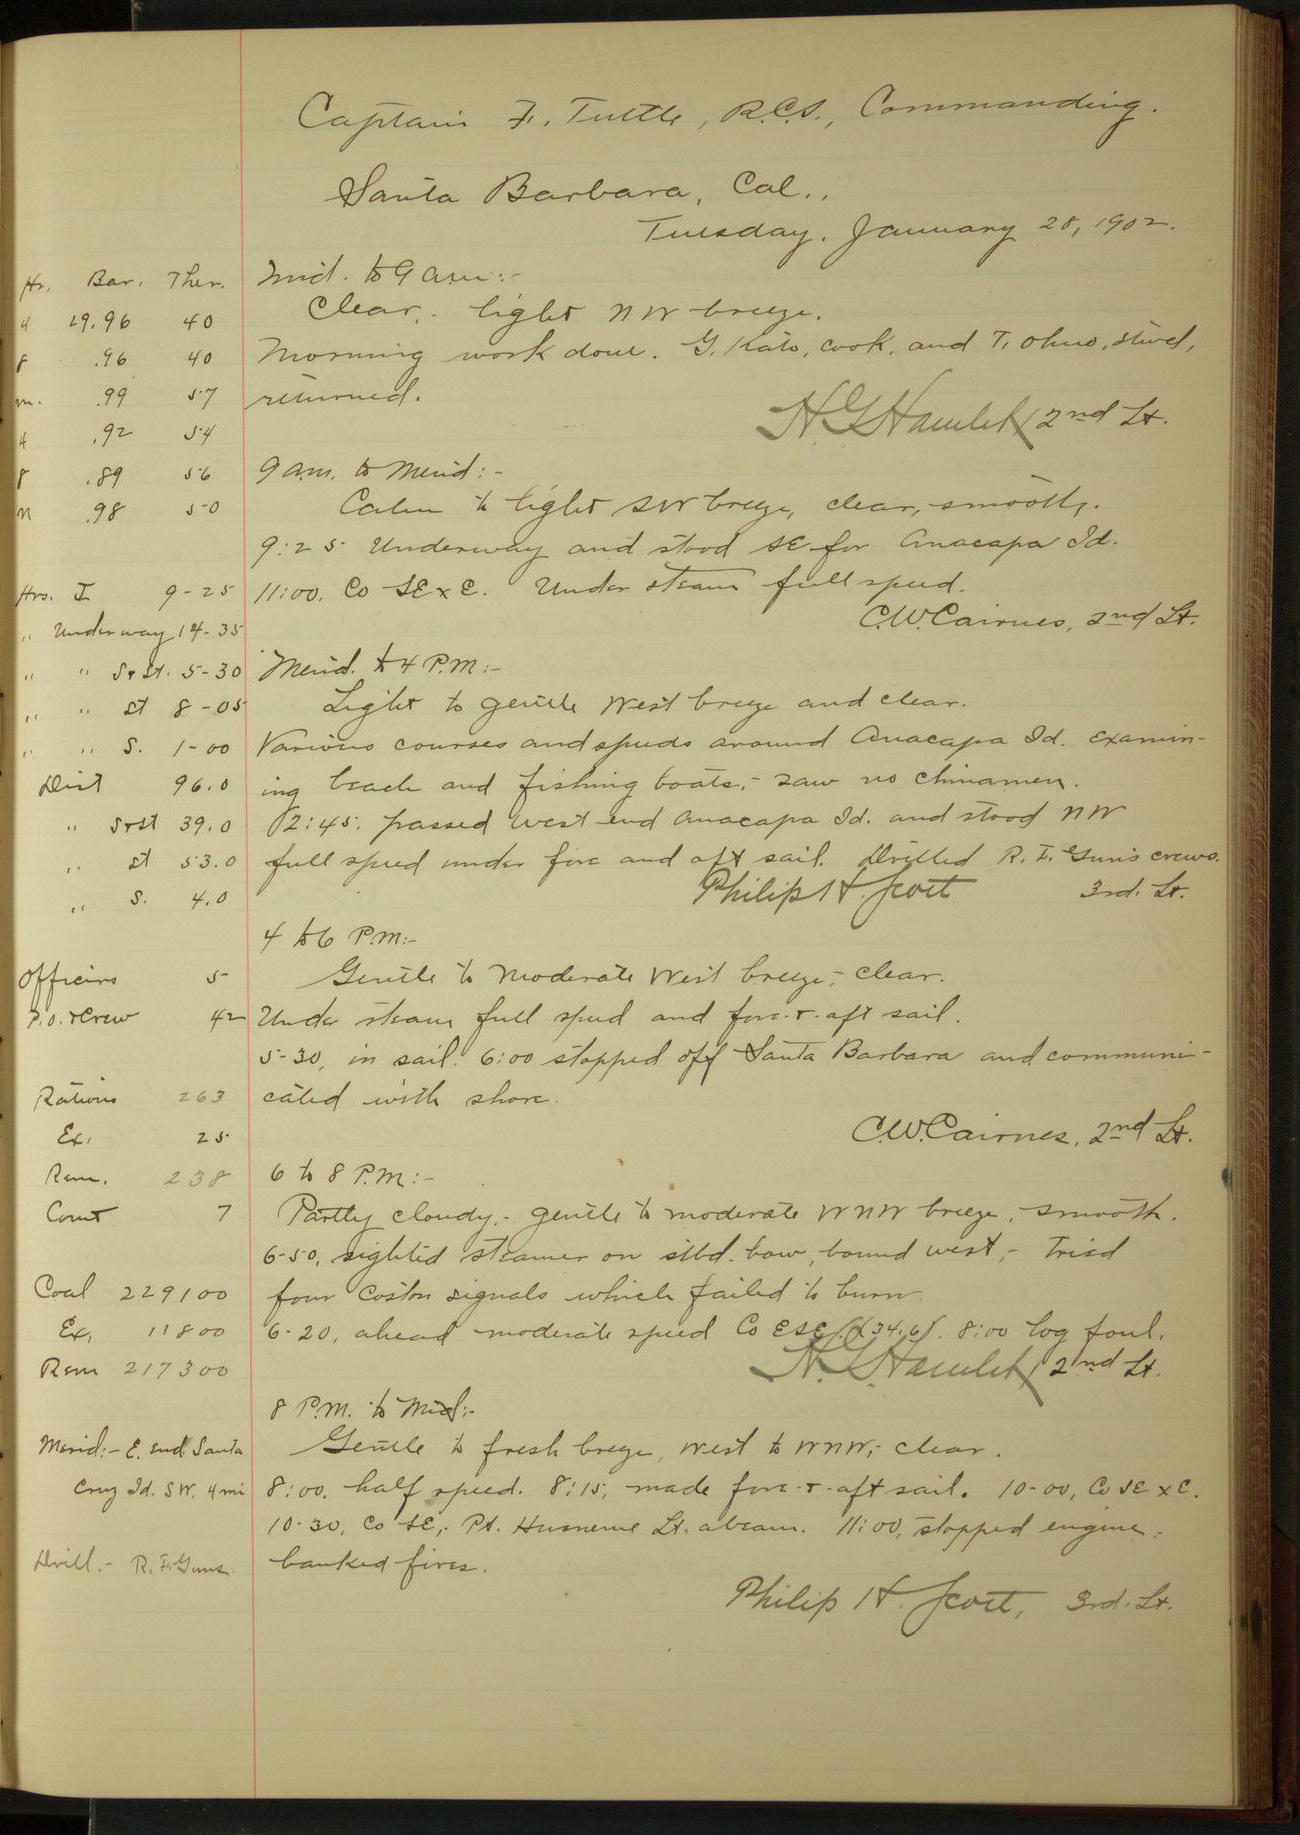 Captain F. Tuttle, R.C.S., Commanding.
Santa Barbara, Cal.,
Tuesday, January 28, 1902.
Hr. Bar. Ther.
4 29.96 40
8 .96 40
m. .99 57
4 .92 54
8 .89 56
m .98 50
Hrs. I 9-25
" Underway 14-35
" " S&St. 5-30
" " St 8-05
" " S. 1-00
Dist 96.0
" S&St 39.0
" St 53.0
" S. 4.0
Officers 5
P.O. & Crew 42
Rations 263
Ex. 25
Rem. 238
Comt 7
Coal 229100
Ex. 11800
Rem 217300
Merid:- E. End Santa
Cruz Id. SW. 4 mi
Drill.- R.F. Guns.
Mid. to 9 am:-
Clear,- light NW breeze.
Morning work done. G. Kato, cook, and T. Ohno, stwd,
returned.
H.G. Hamlet 2nd Lt.
9 am. to Merid:-
Calm to light SW breeze, clear, smooth.
9:25 Underway and stood SE for Anacapa Id.
11:00. Co SE x E. Under steam full speed.
C.W. Cairnes, 2nd Lt.
Merid. to 4 P.M:-
Light to gentle West breeze and clear.
Various courses and speeds around Anacapa Id. examin-
ing beach and fishing boats,- saw no chinamen.
2:45. passed West end Anacapa Id. and stood NW
full speed under fore and aft sail. Drilled R.F. Guns crews.
Philip H. Scott 3rd. Lt.
4 to 6 P.M:-
Gentle to moderate West breeze,- clear.
Under steam full speed and fore-&-aft sail.
5-30, in sail. 6:00 stopped off Santa Barbara and communi-
cated with shore.
C.W. Cairnes, 2nd Lt.
6 to 8 P.M:-
Partly cloudy,- gentle to moderate WNW breeze, smooth.
6-50, sighted steamer on stbd. bow, bound west,- Tried
four Coston signals which failed to burn.
6-20, ahead moderate speed Co ESE (34.6). 8:00 log foul.
H.G. Hamlet 2nd Lt.
8 P.M. to Mid:-
Gentle to fresh breeze, West to WNW,- clear.
8:00, half speed. 8:15, made fore-&-aft sail. 10-00, Co SE x E.
10-30, Co SE,- Pt. Hueneme Lt. abeam. 11:00, stopped engine.
banked fires.
Philip H. Scott, 3rd. Lt.